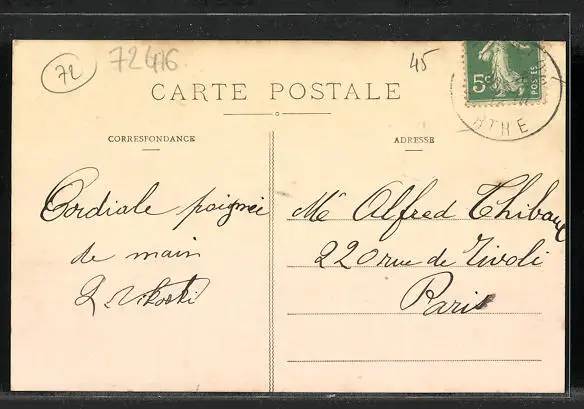 72
72416
45
CARTE POSTALE
5c
POSTES
THE
CORRESPONDANCE
ADRESSE
Cordiale poignée
de main
Me Alfred Thibaux
220 rue de Tivoli
Paris